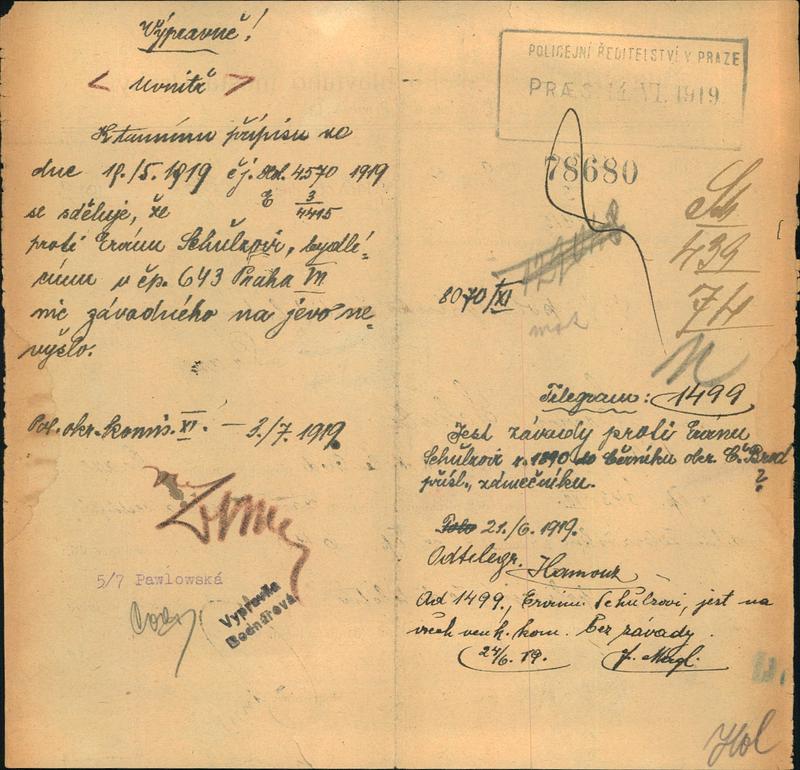 Výpravně!
< Uvnitř >
K tamnímu přípisu ze
dne 18./5. 1919 čj. 4570 1919
E 3/4415
se sděluje, že
proti Ervínu Schulzovi, bydlé-
címu v čp. 643 Praha VII
nic závadného na jevo ne-
vyšlo.
Pol. okr. komis. XI. — 3./7. 1919.
5/7 Pawlowská
Vypravila
Bednářová
POLICEJNÍ ŘEDITELSTVÍ V PRAZE
PRÆS 14. VI. 1919
78680
Sch
439
8070/XI
74
Telegram: 1499
Jest závady proti Ervínu
Schulzovi n. 1890 do Černíku okr. Č. Brod
přísl., zámečníku. ?
21./6. 1919.
Odtelegr. Hamouz
Ad 1499., Ervinu Schulzovi, jest na
všech venk. kom. bez závady.
24/6. 19. J. Magl.
Hol